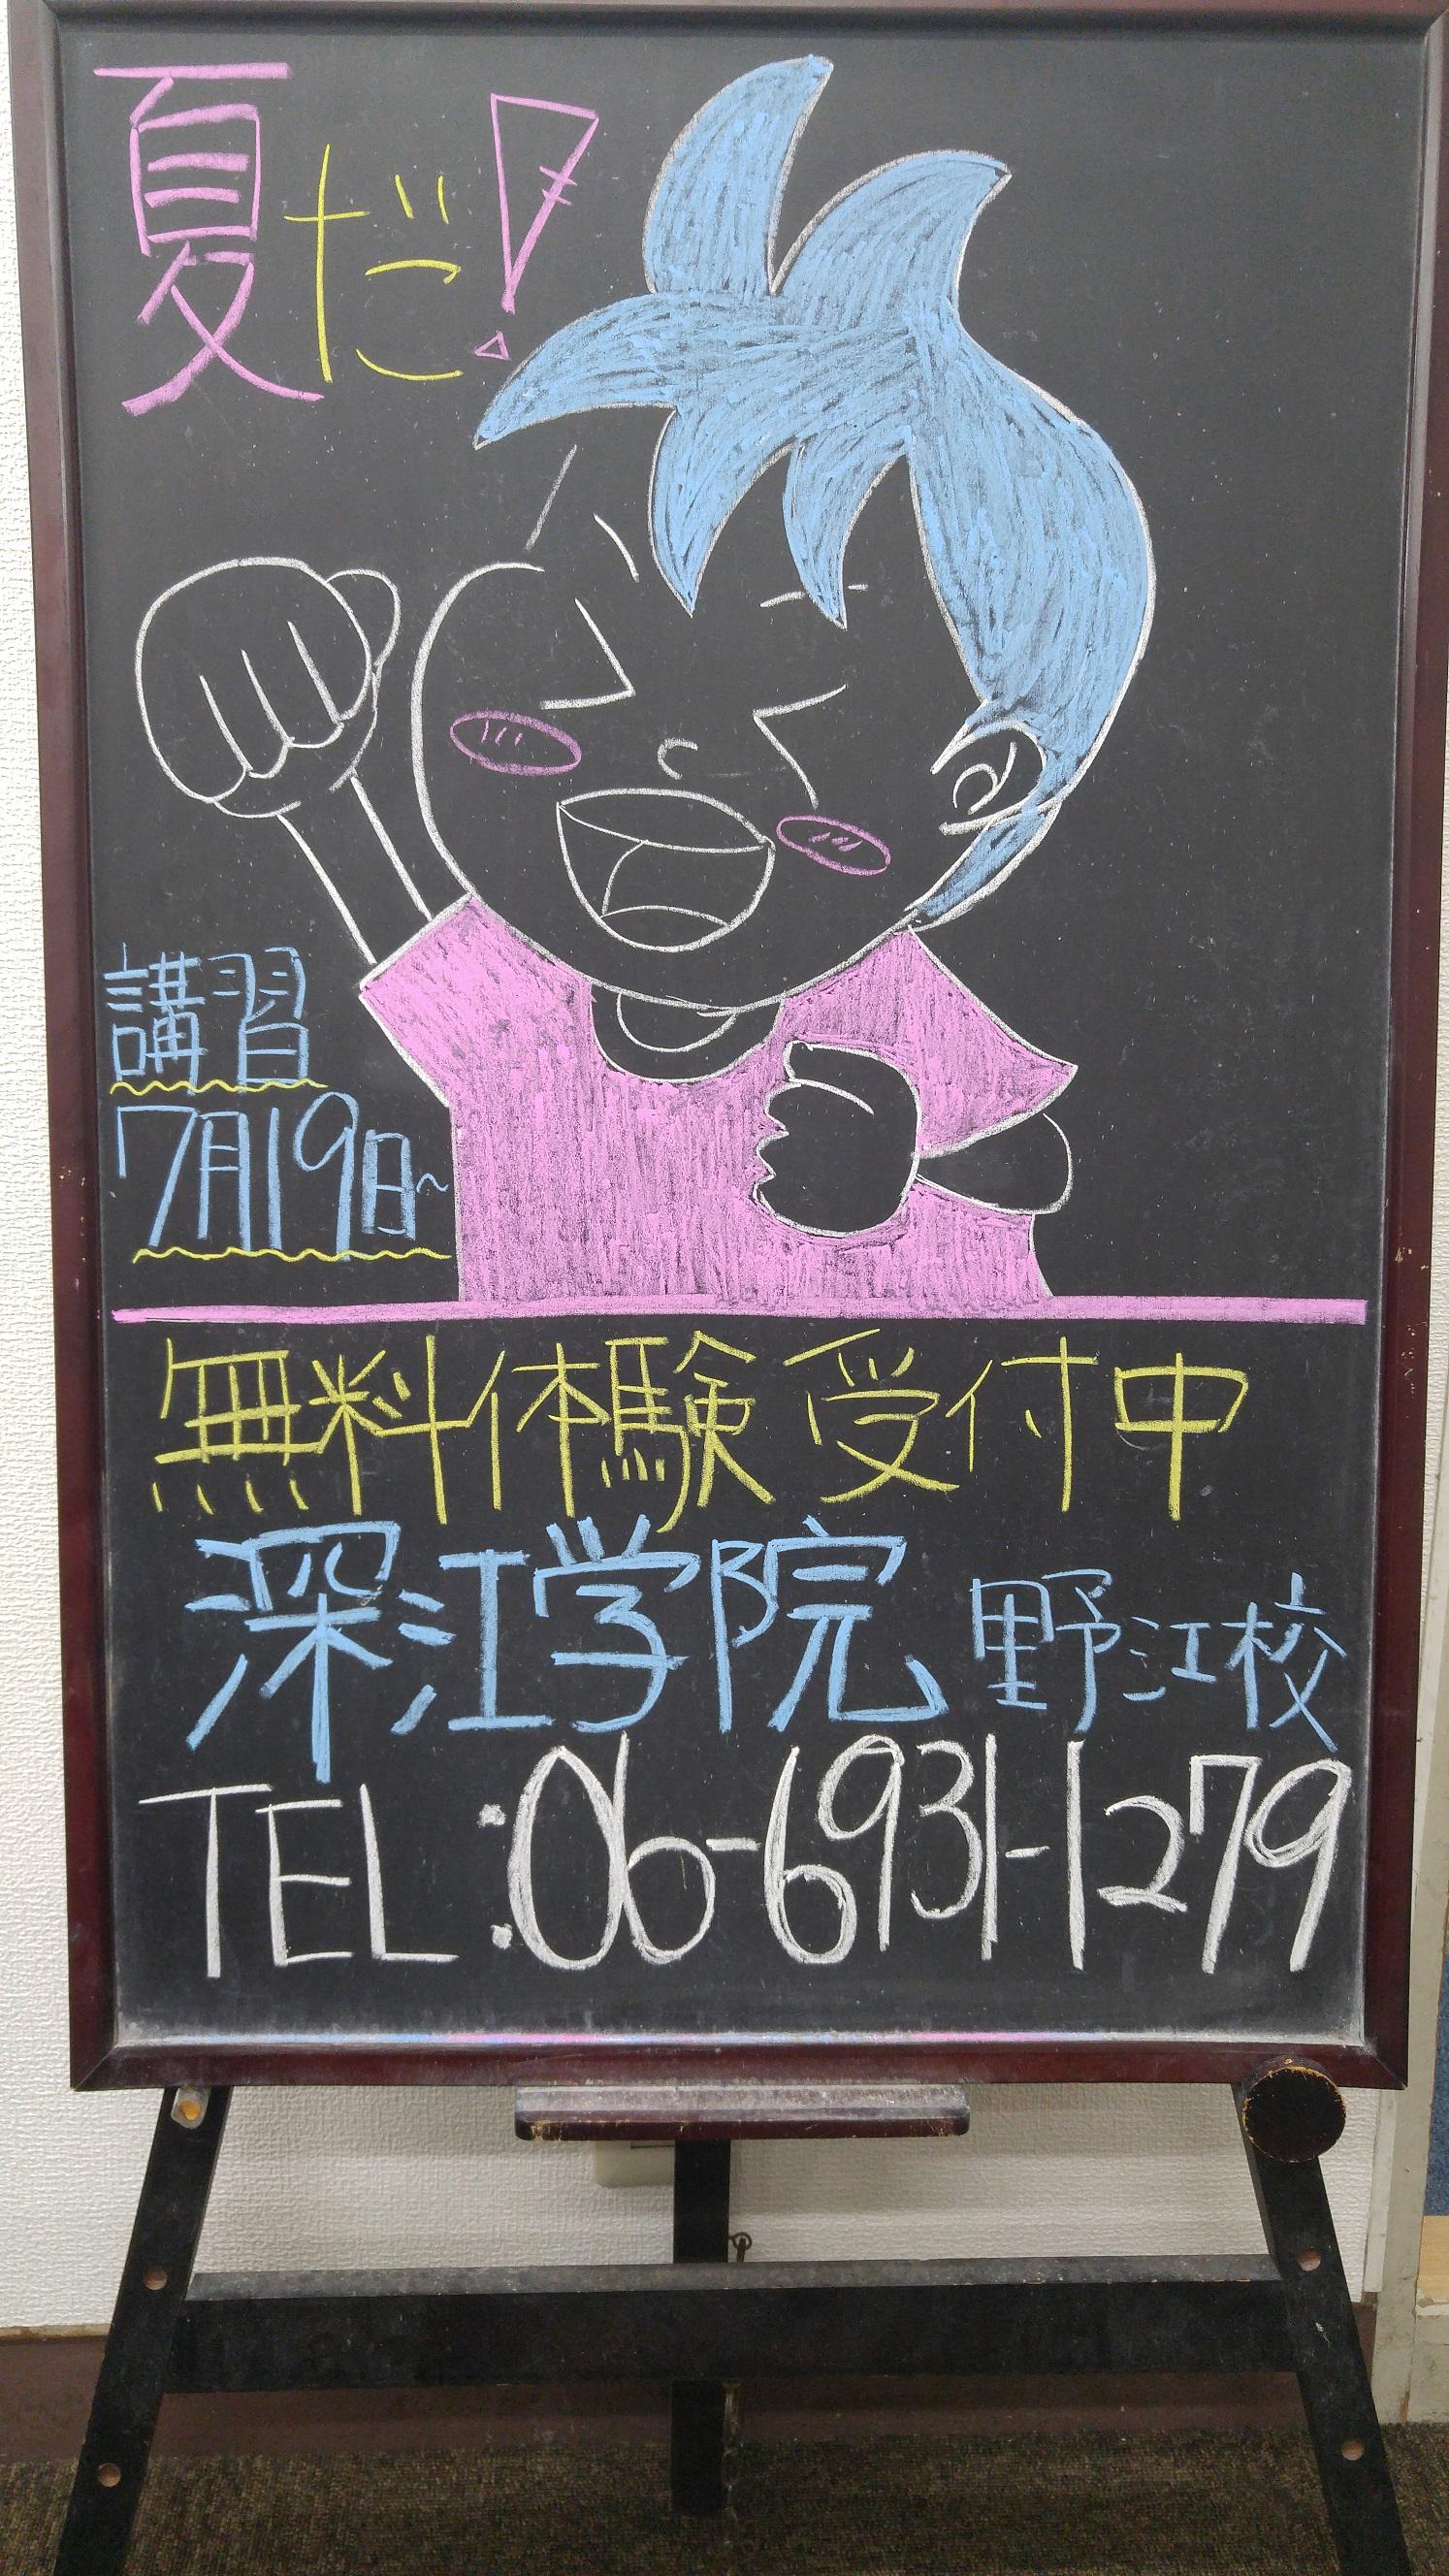 夏だ!
講習
7月19日~
無料体験受付中
深江学院 野江校
TEL:06-6931-1279